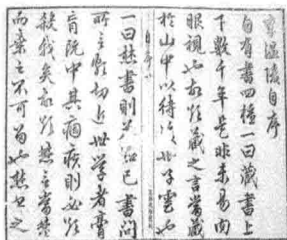 李溫陵自序
自有書四種一曰藏書上
下數千年是非未易肉
眼視也故欲藏之言當藏
於山中以待後世子雲也
自序
一曰焚書則答知己書問
所言頗切近世學者膏
肓既中其痼疾則必欲
殺我矣故欲焚之言當焚
而棄之不可留也焚書之